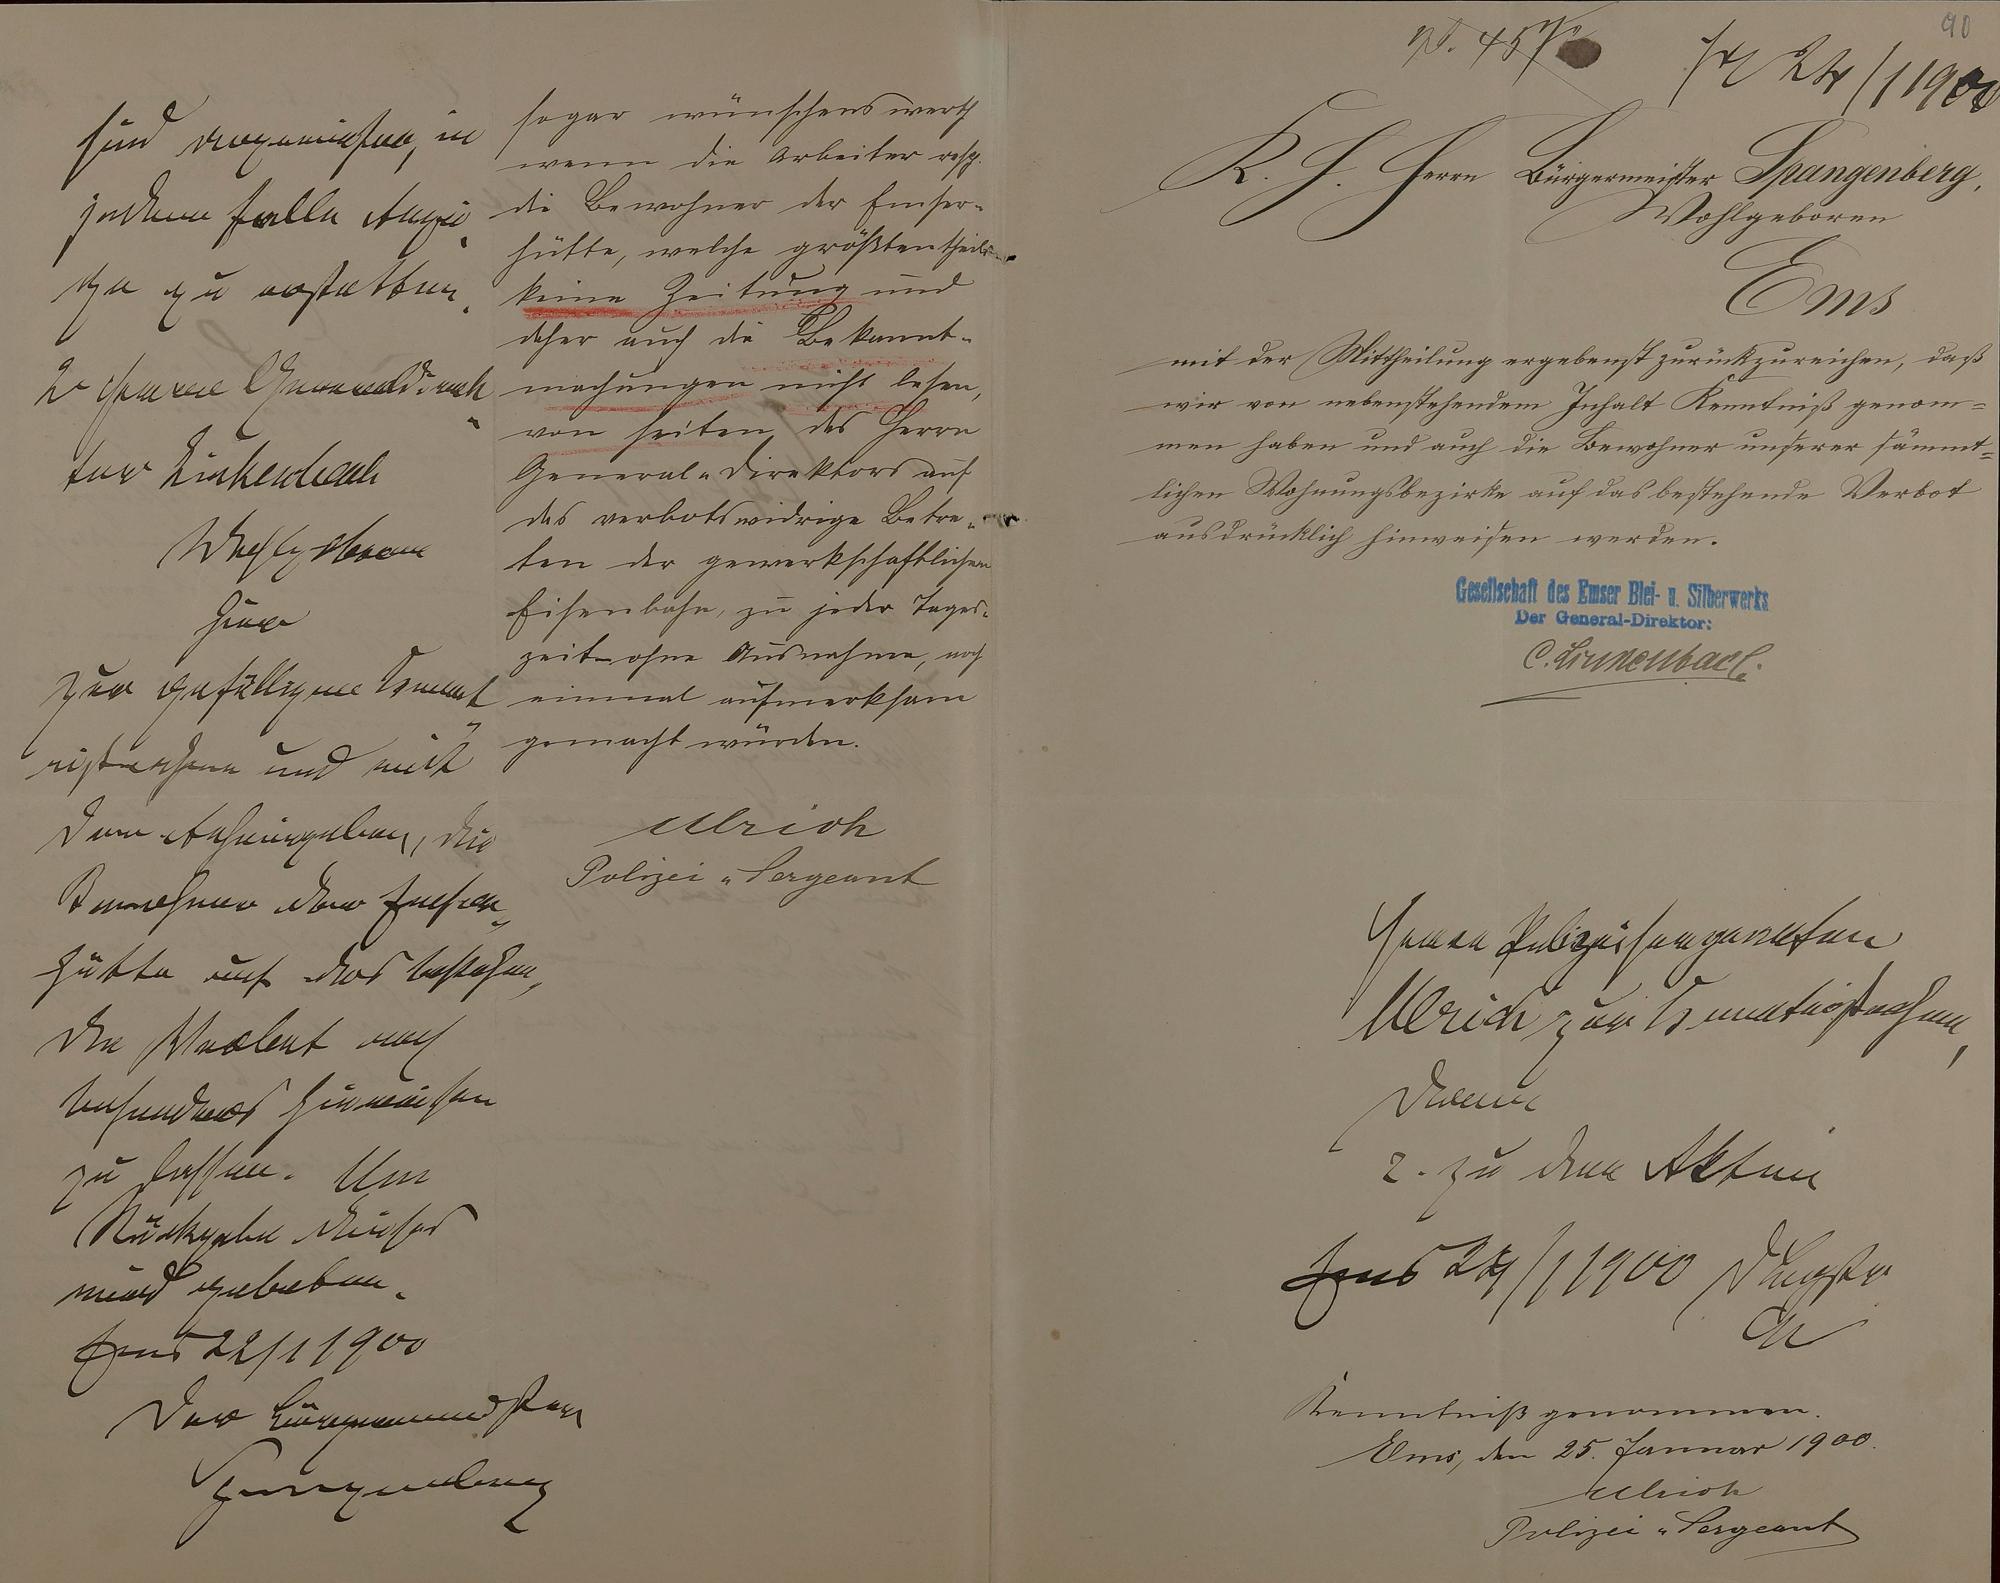 sind anzuweisen, in
jedem Falle Anzei-
ge zu erstatten.
2 Herrn Generaldirek-
tor Linkenbach
Wohlgeboren
hier
zur gefälligen Kennt-
nißnahme und mit
dem Anheimgeben, die
Bewohner der Emser-
hütte auf das bestehen-
de Verbot noch
besonders hinweisen
zu lassen. Um
Rückgabe dieses
wird gebeten.
Ems 22/1 1900
Der Bürgermeister
Spangenberg
sogar wünschenswerth
wenn die Arbeiter resp.
die Bewohner der Emser-
hütte, welche größtentheils
keine Zeitung und
daher auch die Bekannt-
machungen nicht lesen,
von seiten des Herrn
General-Direktors auf
das verbotswidrige Betre-
ten der gewerkschaftlichen
Eisenbahn, zu jeder Tages-
zeit ohne Ausnahme, noch
einmal aufmerksam
gemacht würden.
Ulrich
Polizei-Sergeant
90
24/1 1900
K. H. Herrn Bürgermeister Spangenberg,
Wohlgeboren
Ems
mit der Mittheilung ergebenst zurückzureichen, daß
wir von nebenstehendem Inhalt Kenntniß genom=
men haben und auch die Bewohner unserer sämmt=
lichen Wohnungsbezirke auf das bestehende Verbot
ausdrücklich hinweisen werden.
Gesellschaft des Emser Blei- u. Silberwerks
Der General-Direktor:
C. Linkenbach.
Herrn Polizeisergeanten
Ulrich zur Kenntnißnahme,
dann
2. zu den Akten
Ems 24/1 1900
Kenntniß genommen.
Ems, den 25. Januar 1900.
Ulrich
Polizei-Sergeant